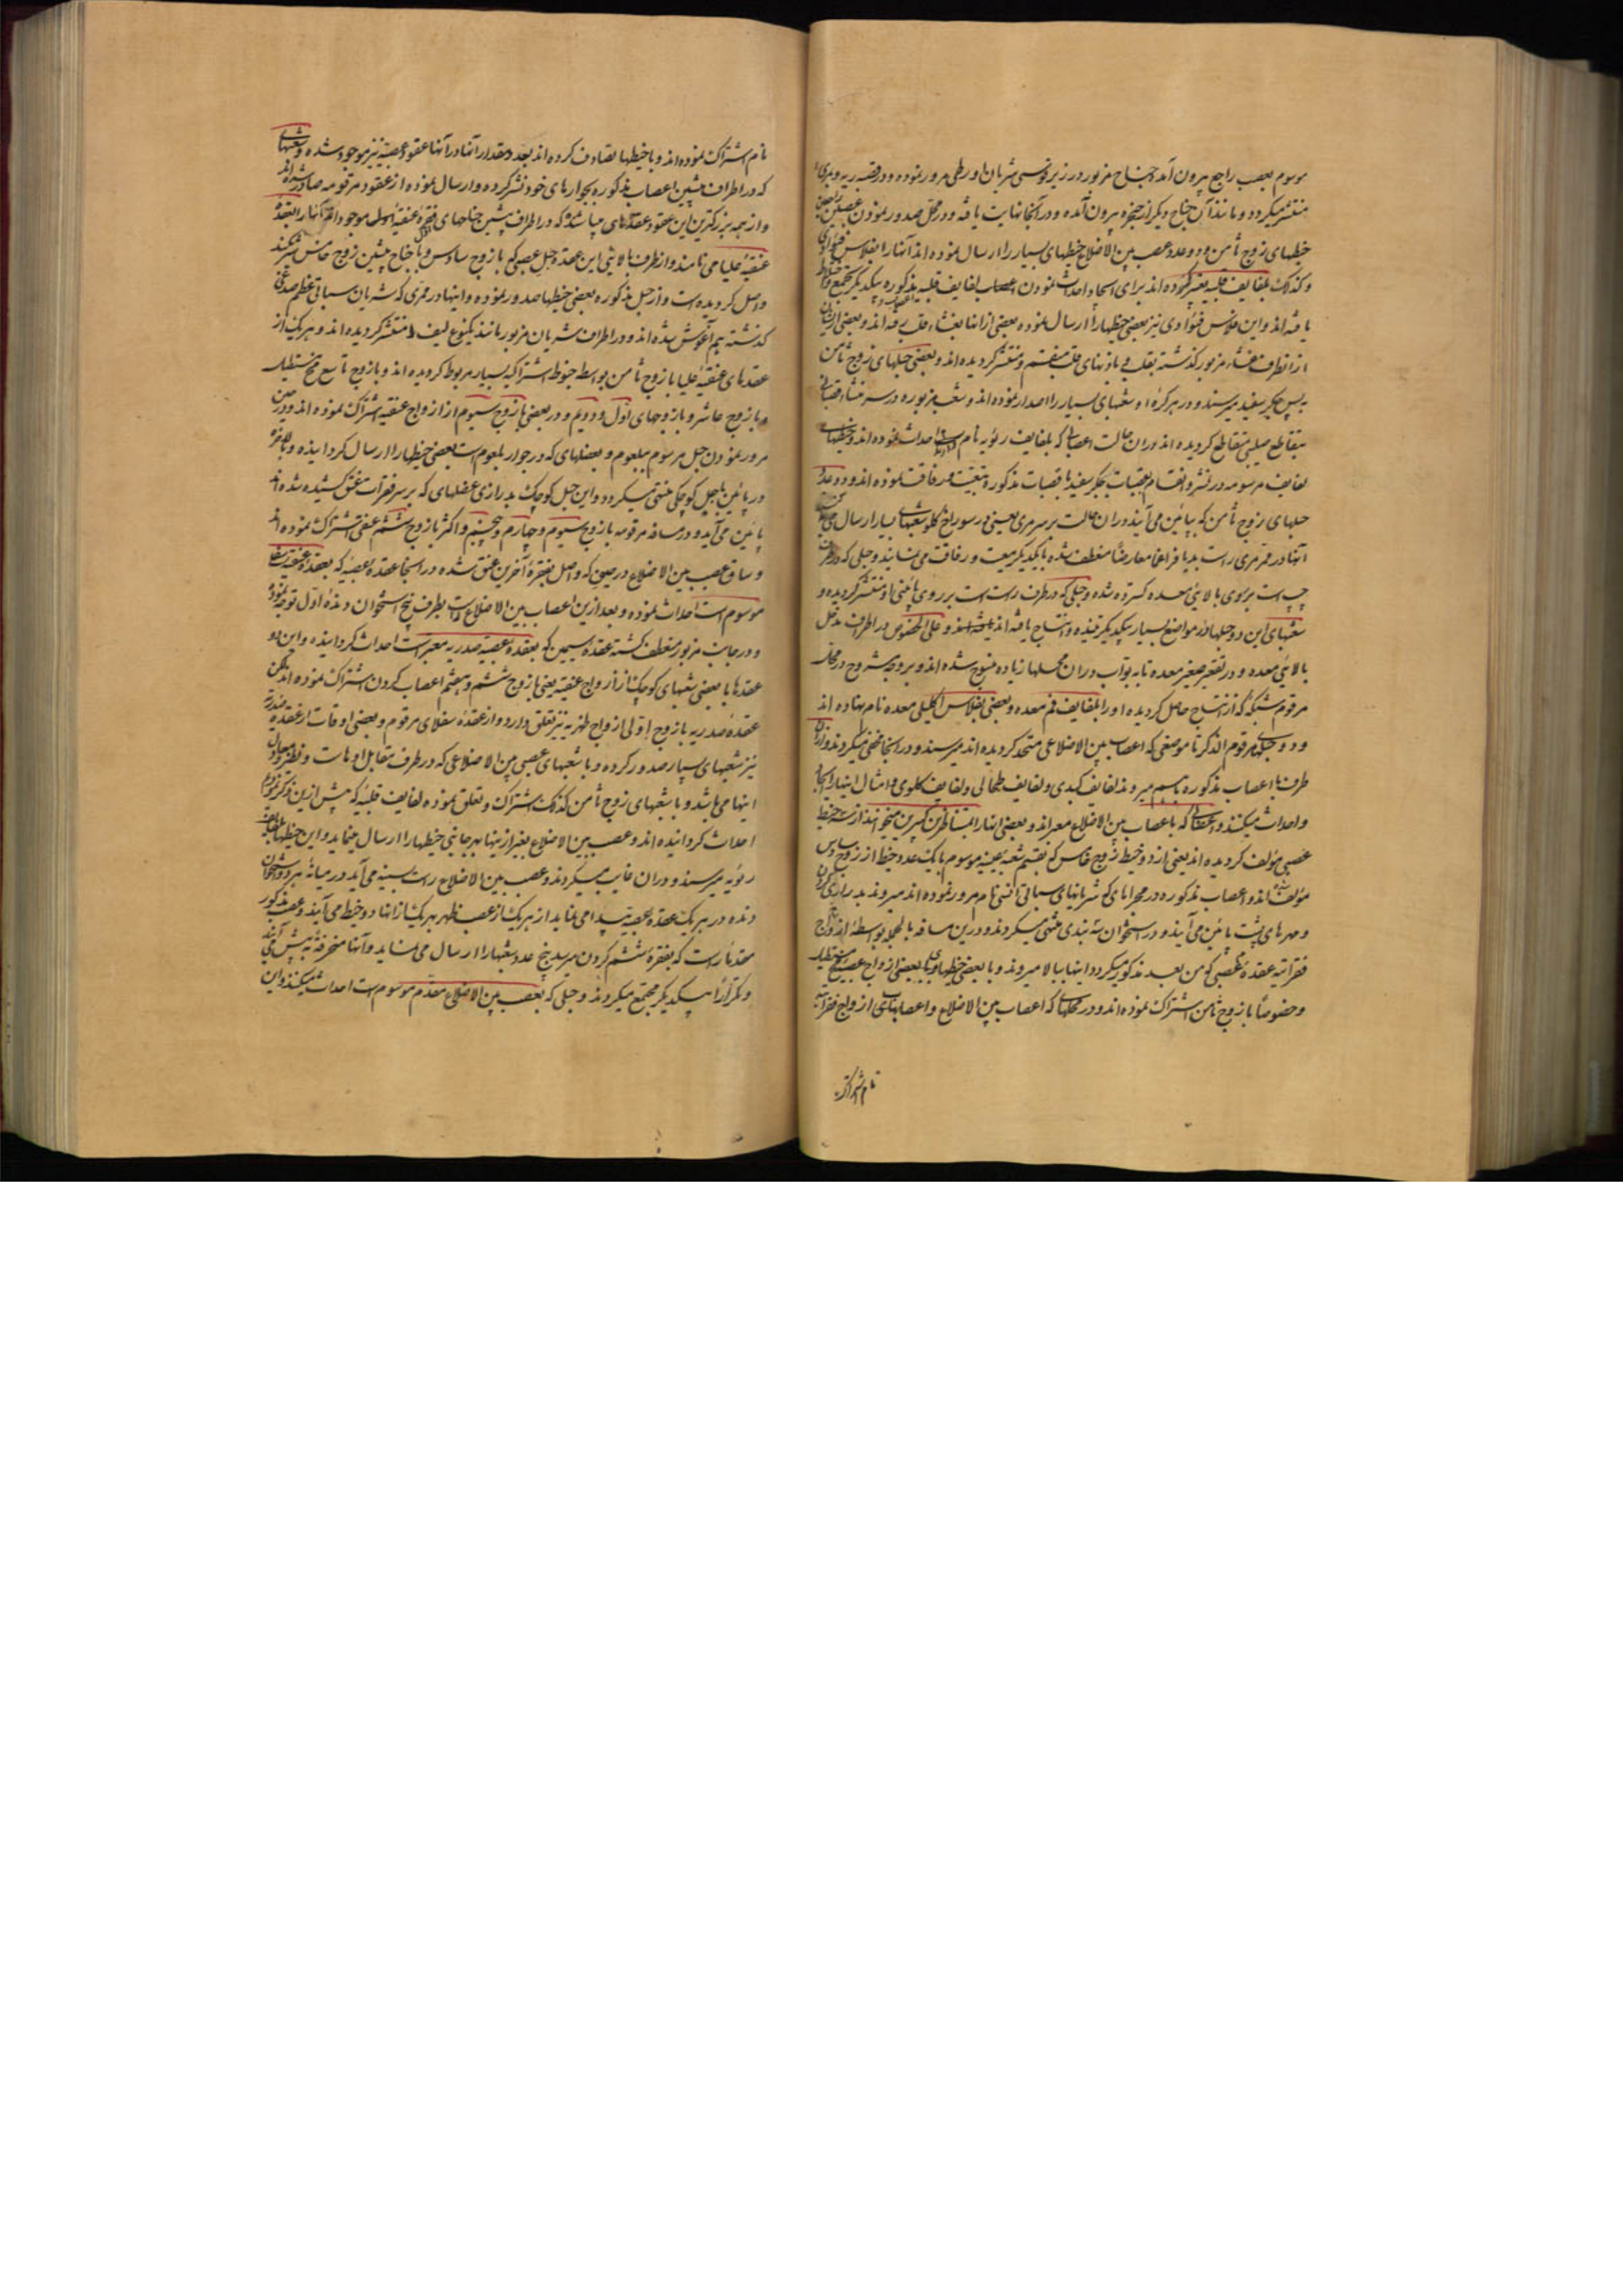 موسوم بعصب راجع بیرون آمده جناح مزبور در زیر قوسی شریان اورطی مرور نموده و در قصبه ریه و مری
منتشر میکردد و مانند آن جناح دیکر از حنجره بیرون آمده و در آنجا نهایت یافته و در محل صدور نمودن عصبین راجعین
خیطهای زوج ثامن و دو عدد عصب بین الاضلاع خیطهای بسیار را ارسال نموده اند آنها را بفلاس فؤادی
و کذلک بلفایف قلبیه تعبیر کرده اند برای اینجا و احداث نمودن لفایف قلبیه مذکوره بیکدیکر مجتمع و اختلاط
یافته اند و این فلاس فؤادی نیز بعضی خیطها را ارسال نموده بعضی از انها بغشاء قلب رفته اند و بعضی از ایشان
از انطرف غشاء مزبور کذشته بقلب و باذنهای قلب منقسم و منتشر کردیده اند و بعضی حبلهای زوج ثامن
به پس جکر سفید میرسند و در هر کره او شعبهای بسیار را اصدار نموده اند و شعب مزبوره در سر منشاء قصبات
بتقاطع صلیبی متقاطع کردیده اند در ان حالت اعصابی که بلفایف ریویه نام است احداث نموده اند و خیطهای
لفایف مرسومه در نشر و انقسام بقصبات جکر سفید با قصبات مذکوره تبعیت و رفاقت نموده اند و دو عدد
حبلهای زوج ثامن که بپائین می آیند در ان حالت بر سر مری یعنی در سوراخ کلو شعبهای بسیار ارسال
آنها در ممر مری راست بدیافراغما معارضا منعطف شده با یکدیکر معیت و رفاقت می نمایند و حبلی که در طرف
چپ است بر روی بالایی معده کسترده شده و حبلی که در طرف راست است بر روی پائینی او منتشر کردیده و
شعبهای این دو حبلها در مواضع بسیار بیکدیکر تنیده و انتساج یافته اند و علی الخصوص در اطراف مدخل
بالائی معده و در تقعیر صغیر معده تا به بواب در ان محلها زیاده منسوج شده اند و بر وجه مشروح در محل
مرقوم شبکه که از انتساج حاصل کردیده او را بلفایف فم معده و بعضی بفلاس اکلیلی معده نام نهاده اند
و دو حبلها مرقوم الذکر تا موضعی که اعصاب بین الاضلاعی متحد کردیده اند میرسند و در انجا مخفی میکردند و از ان
طرف با اعصاب مذکوره باسم میروند لفایف کبدی و لفایف طحالی و لفایف کلوی و امثال اینها را ایجاد
و احداث میکنند و اعصابی که باعصاب بین الاضلاع معبر اند و بعضی انها را المتناظرین کبیرین میخوانند از سه خیط
عصبی مؤلف کردیده اند یعنی از دو خیط زوج خامس که بقسم شعبه عینیه موسوم با یک عدد خیط از زوج سادس
مؤلف شده اند و اعصاب مذکوره در مجراهای که شریانهای سباتی انسی نام مرور نموده اند میروند بدرازی کردن
و مهرهای پشت پائین می آیند و در استخوان نشستنی منتهی میکردند و در این مسافه بالجمله بواسطه ازواج
فقراتیه عقده عصبی که من بعد مذکور میکردد اینها ببالا میروند و با بعضی خیطها و با بعضی ازواج عصبیه
و خصوصا با زوج ثامن اشتراک نموده اند و در محلهای که اعصاب بین الاضلاع و اعصابهای ازواج فقراتیه
تام اشتراک
تام اشتراک نموده اند و با خیطها تصادف کرده اند بعدد و مقدار انها در انها عقود عصبیه نیز موجود شده و شعبهای
که در اطراف پیشین اعصاب مذکوره بجوارهای خود نشر کرده و ارسال نموده از عقود مرقومه صادر شده اند
و از همه بزرکترین این عقود عقدهای میباشد که در اطراف پیشین جناحهای فقره اول عنقیه موجود اند آنها را بعقده
عنقیه علیا می نامند و از طرف بالایی این عقده و حبل عصبی که با زوج سادس و با جناح پیشین زوج خامس
واصل کردیده است و از حبل مذکوره بعضی خیطها صدور نموده و اینها در ممری که شریان سباتی عظم صدغی
کذشته بهم آغوش شده اند و در اطراف شریان مزبور مانند یکنوع لیف منتشر کردیده اند و هر یک از
عقدهای عنقیه علیا با زوج ثامن بواسطه خیوط اشتراکیه بسیار مربوط کردیده اند و با زوج تاسع مخ مستطیل
و با زوج عاشر و با زوجهای اول و دویم و در بعضی با زوج سیوم از ازواج عنقیه اشتراک نموده اند و در حین
مرور نمودن حبل مرسوم ببلعوم و بعضلهای که در جوار بلعوم است بعضی خیطها را ارسال کردانیده و بالاخره
در پائین با حبل کوچکی منتهی میکردد و این حبل کوچک بدرازی عضلهای که بر سر فقرات عنق کشیده شده اند
پائین می آید و در مسافه مرقومه با زوج سیوم و چهارم و پنجم و اکثر با زوج ششم عنقی اشتراک نموده اند
و ساق عصب بین الاضلاع در حین که واصل بفقره آخرین عنق شده در انجا عقده عصبیه که بعقده عنقیه سفلا
موسوم است احداث نموده و بعد از این اعصاب بین الاضلاع راست بطرف بیخ استخوان دنده اول توجه نموده
و در جانب مزبور منعطف کشته عقده سیمین که بعقده عصبیه صدریه معبر است احداث کردانیده و این دو
عقدها با بعضی شعبهای کوچک از ازواج عنقیه یعنی با زوج ششم و هفتم اعصاب کردن اشتراک نموده اند لکن
عقده صدریه با زوج اولی ازواج ظهریه نیز تعلق دارد و از عقده سفلای مرقوم و بعضی اوقات از عقده صدریه
نیز شعبهای بسیار صدور کرده و با شعبهای عصبی بین الاضلاعی که در طرف مقابل او هات و نظیر و معادل
اینها می باشد و با شعبهای زوج ثامن کذلک اشتراک و تعلق نموده لفایف قلبیه که پیش از این ذکر نمودیم
احداث کردانیده اند و عصب بین الاضلاع بغیر از اینها بهر جانبی خیطها را ارسال مینماید و این خیطها بلفایف
ریویه میرسند و در ان غایب میکردند و عصب بین الاضلاع راست بسینه می آید در میانه هر دو استخوان
دنده در هر یک عقده عصبیه پیدا می نماید از هر یک از عصب ظهر بهر یک از انها دو خیط می آیند و عصب مذکور
مقدار است که بفقره ششم کردن میرسد پنج عدد شعبها را ارسال می نماید و آنها منحرفة به پیش می آیند
و مکررا بیکدیکر مجتمع میکردند و حبلی که بعصب بین الاضلاع مقدم موسوم است احداث میکنند و این